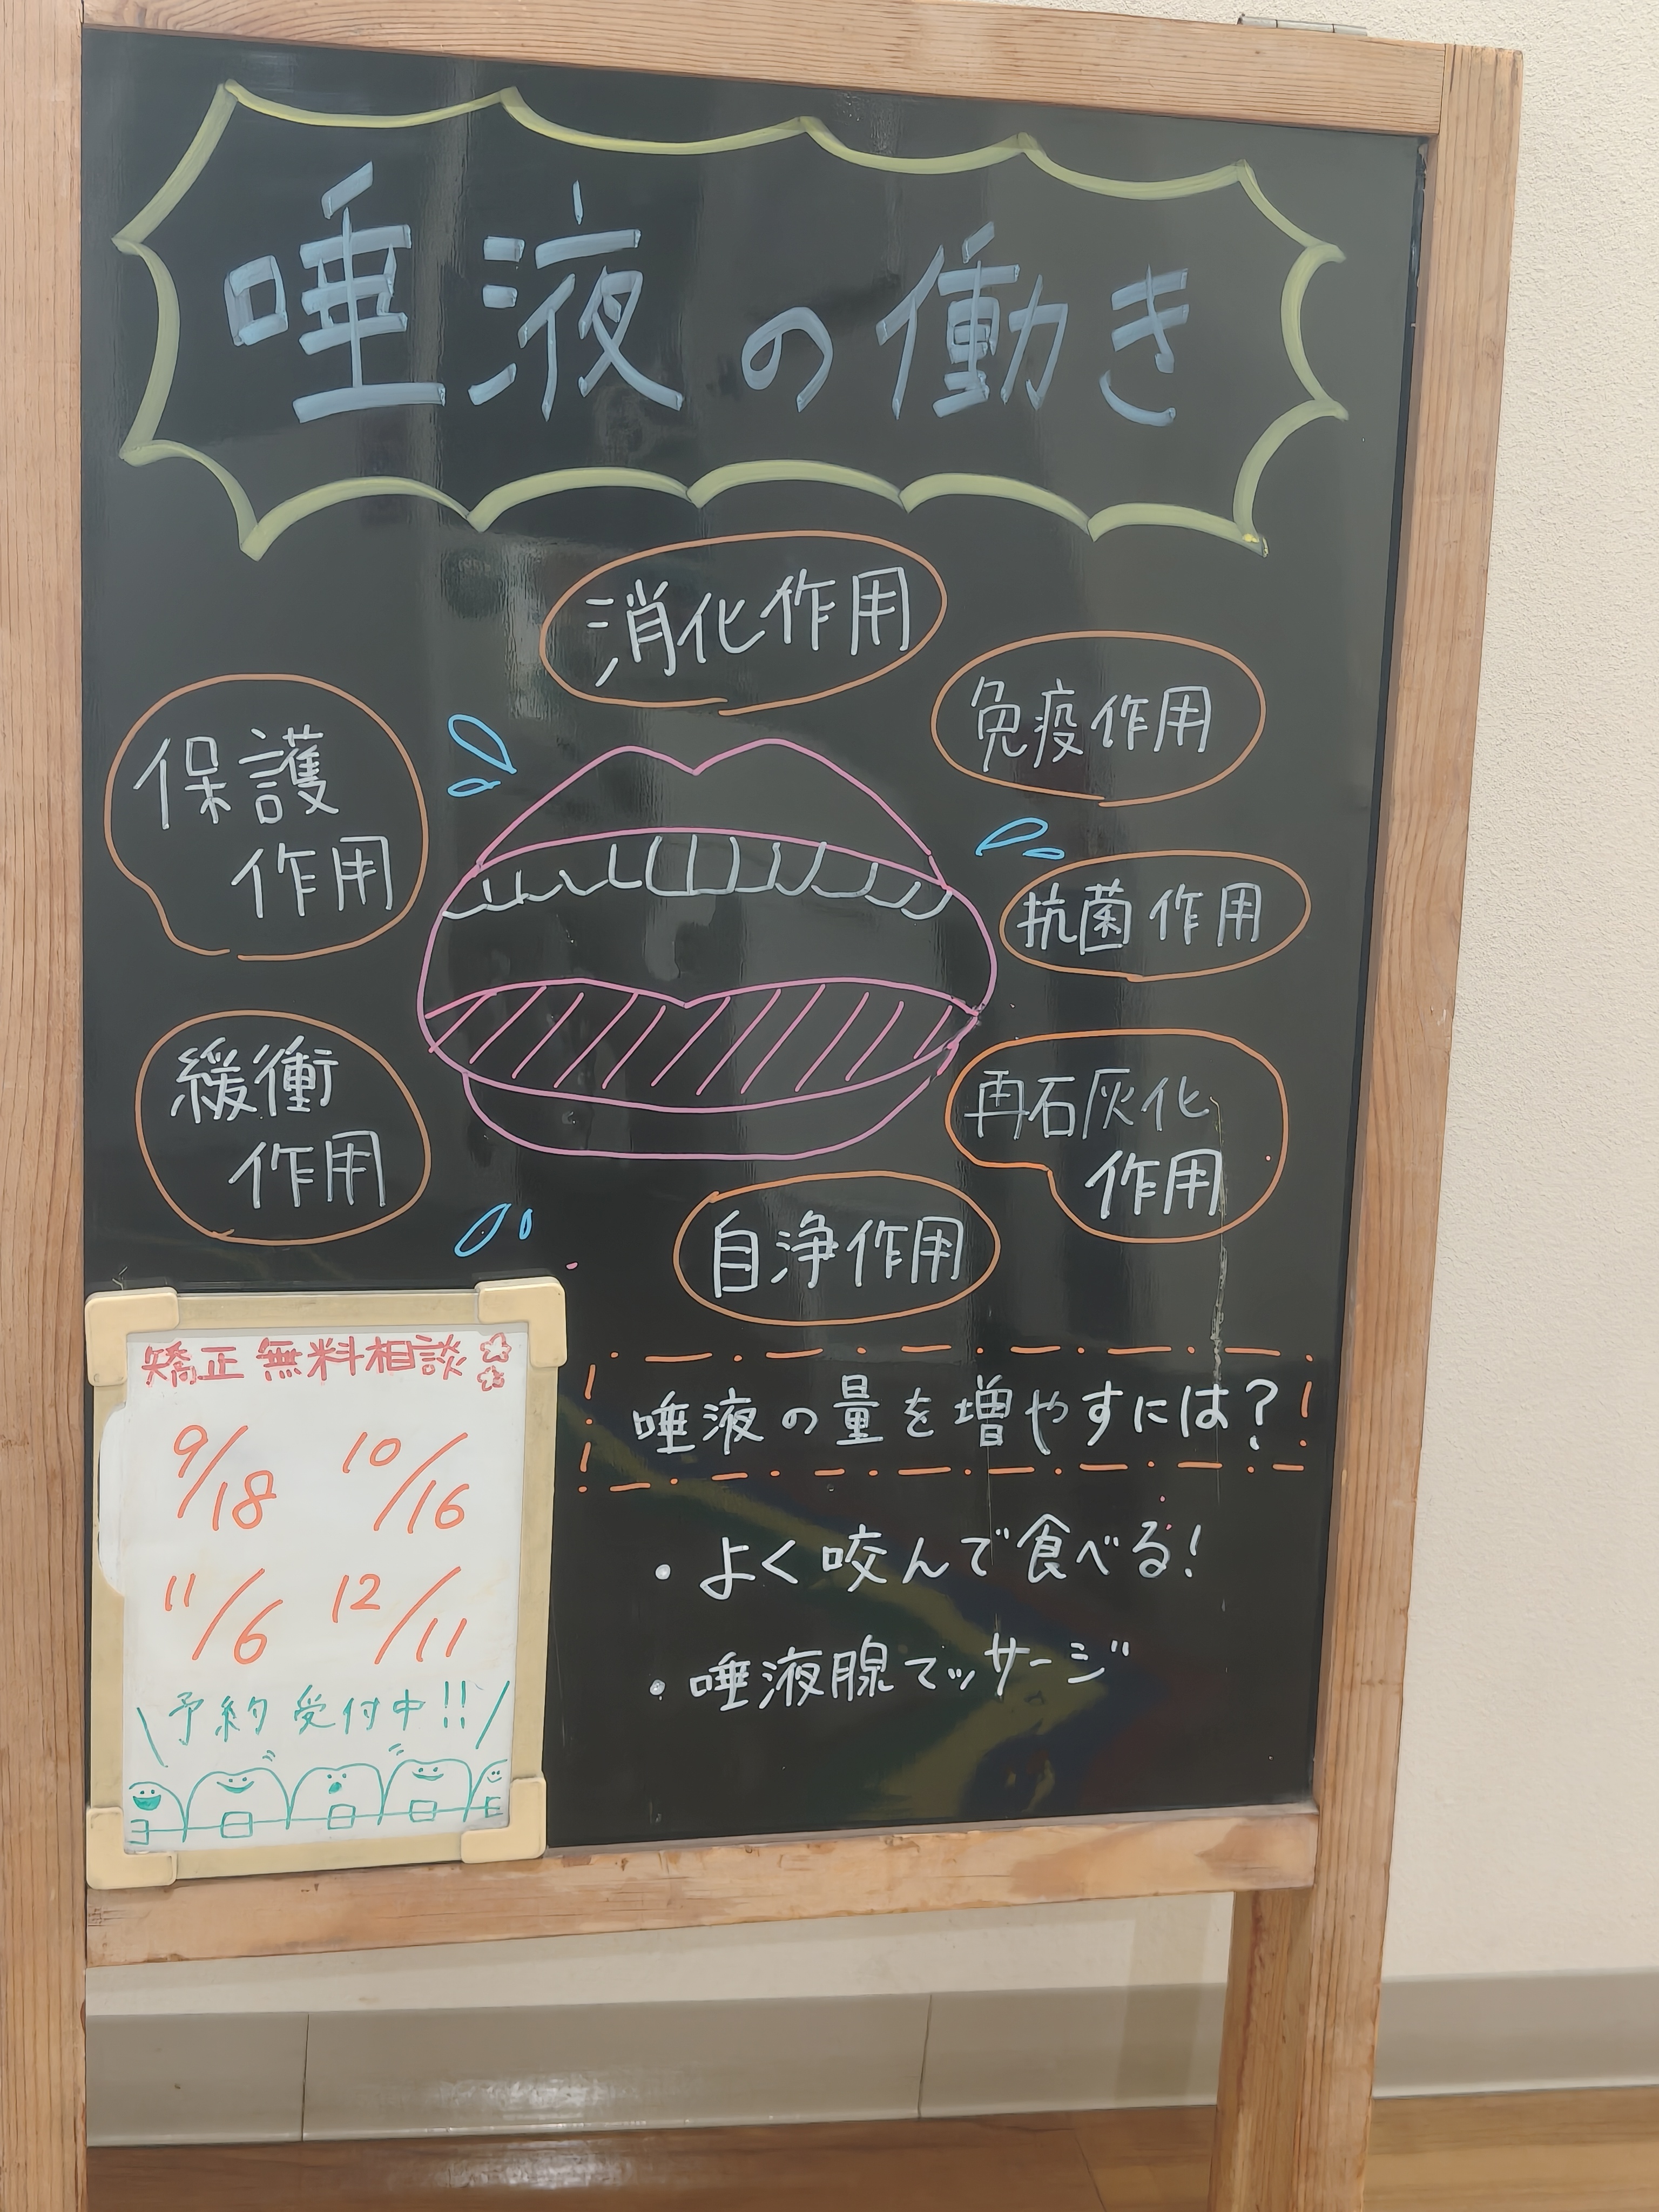 唾液の働き
消化作用
免疫作用
保護
作用
抗菌作用
緩衝
作用
再石灰化
作用
自浄作用
唾液の量を増やすには？
・よく咬んで食べる！
・唾液腺マッサージ
矯正無料相談
9/18 10/16
11/6 12/11
\予約受付中!!/